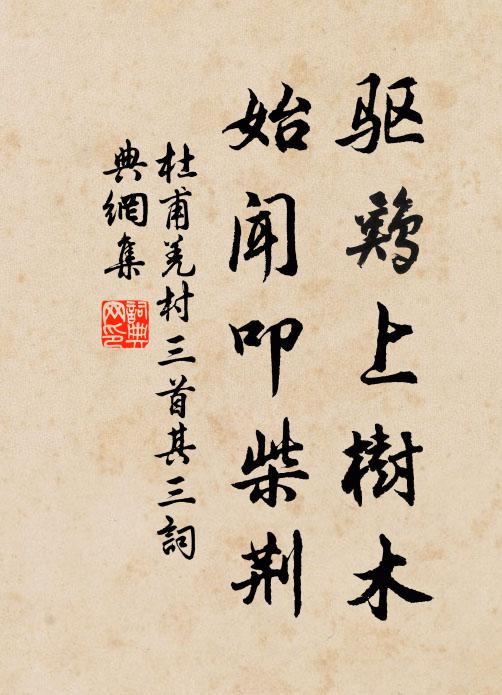 驱鷄上樹木
始闻叩柴荆
杜甫羌村三首其三詞
典網集
詞典网印